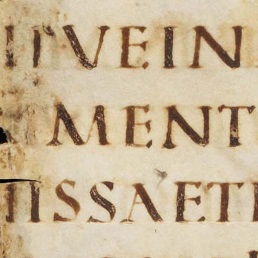 VEIN
MENT
ISSAETI